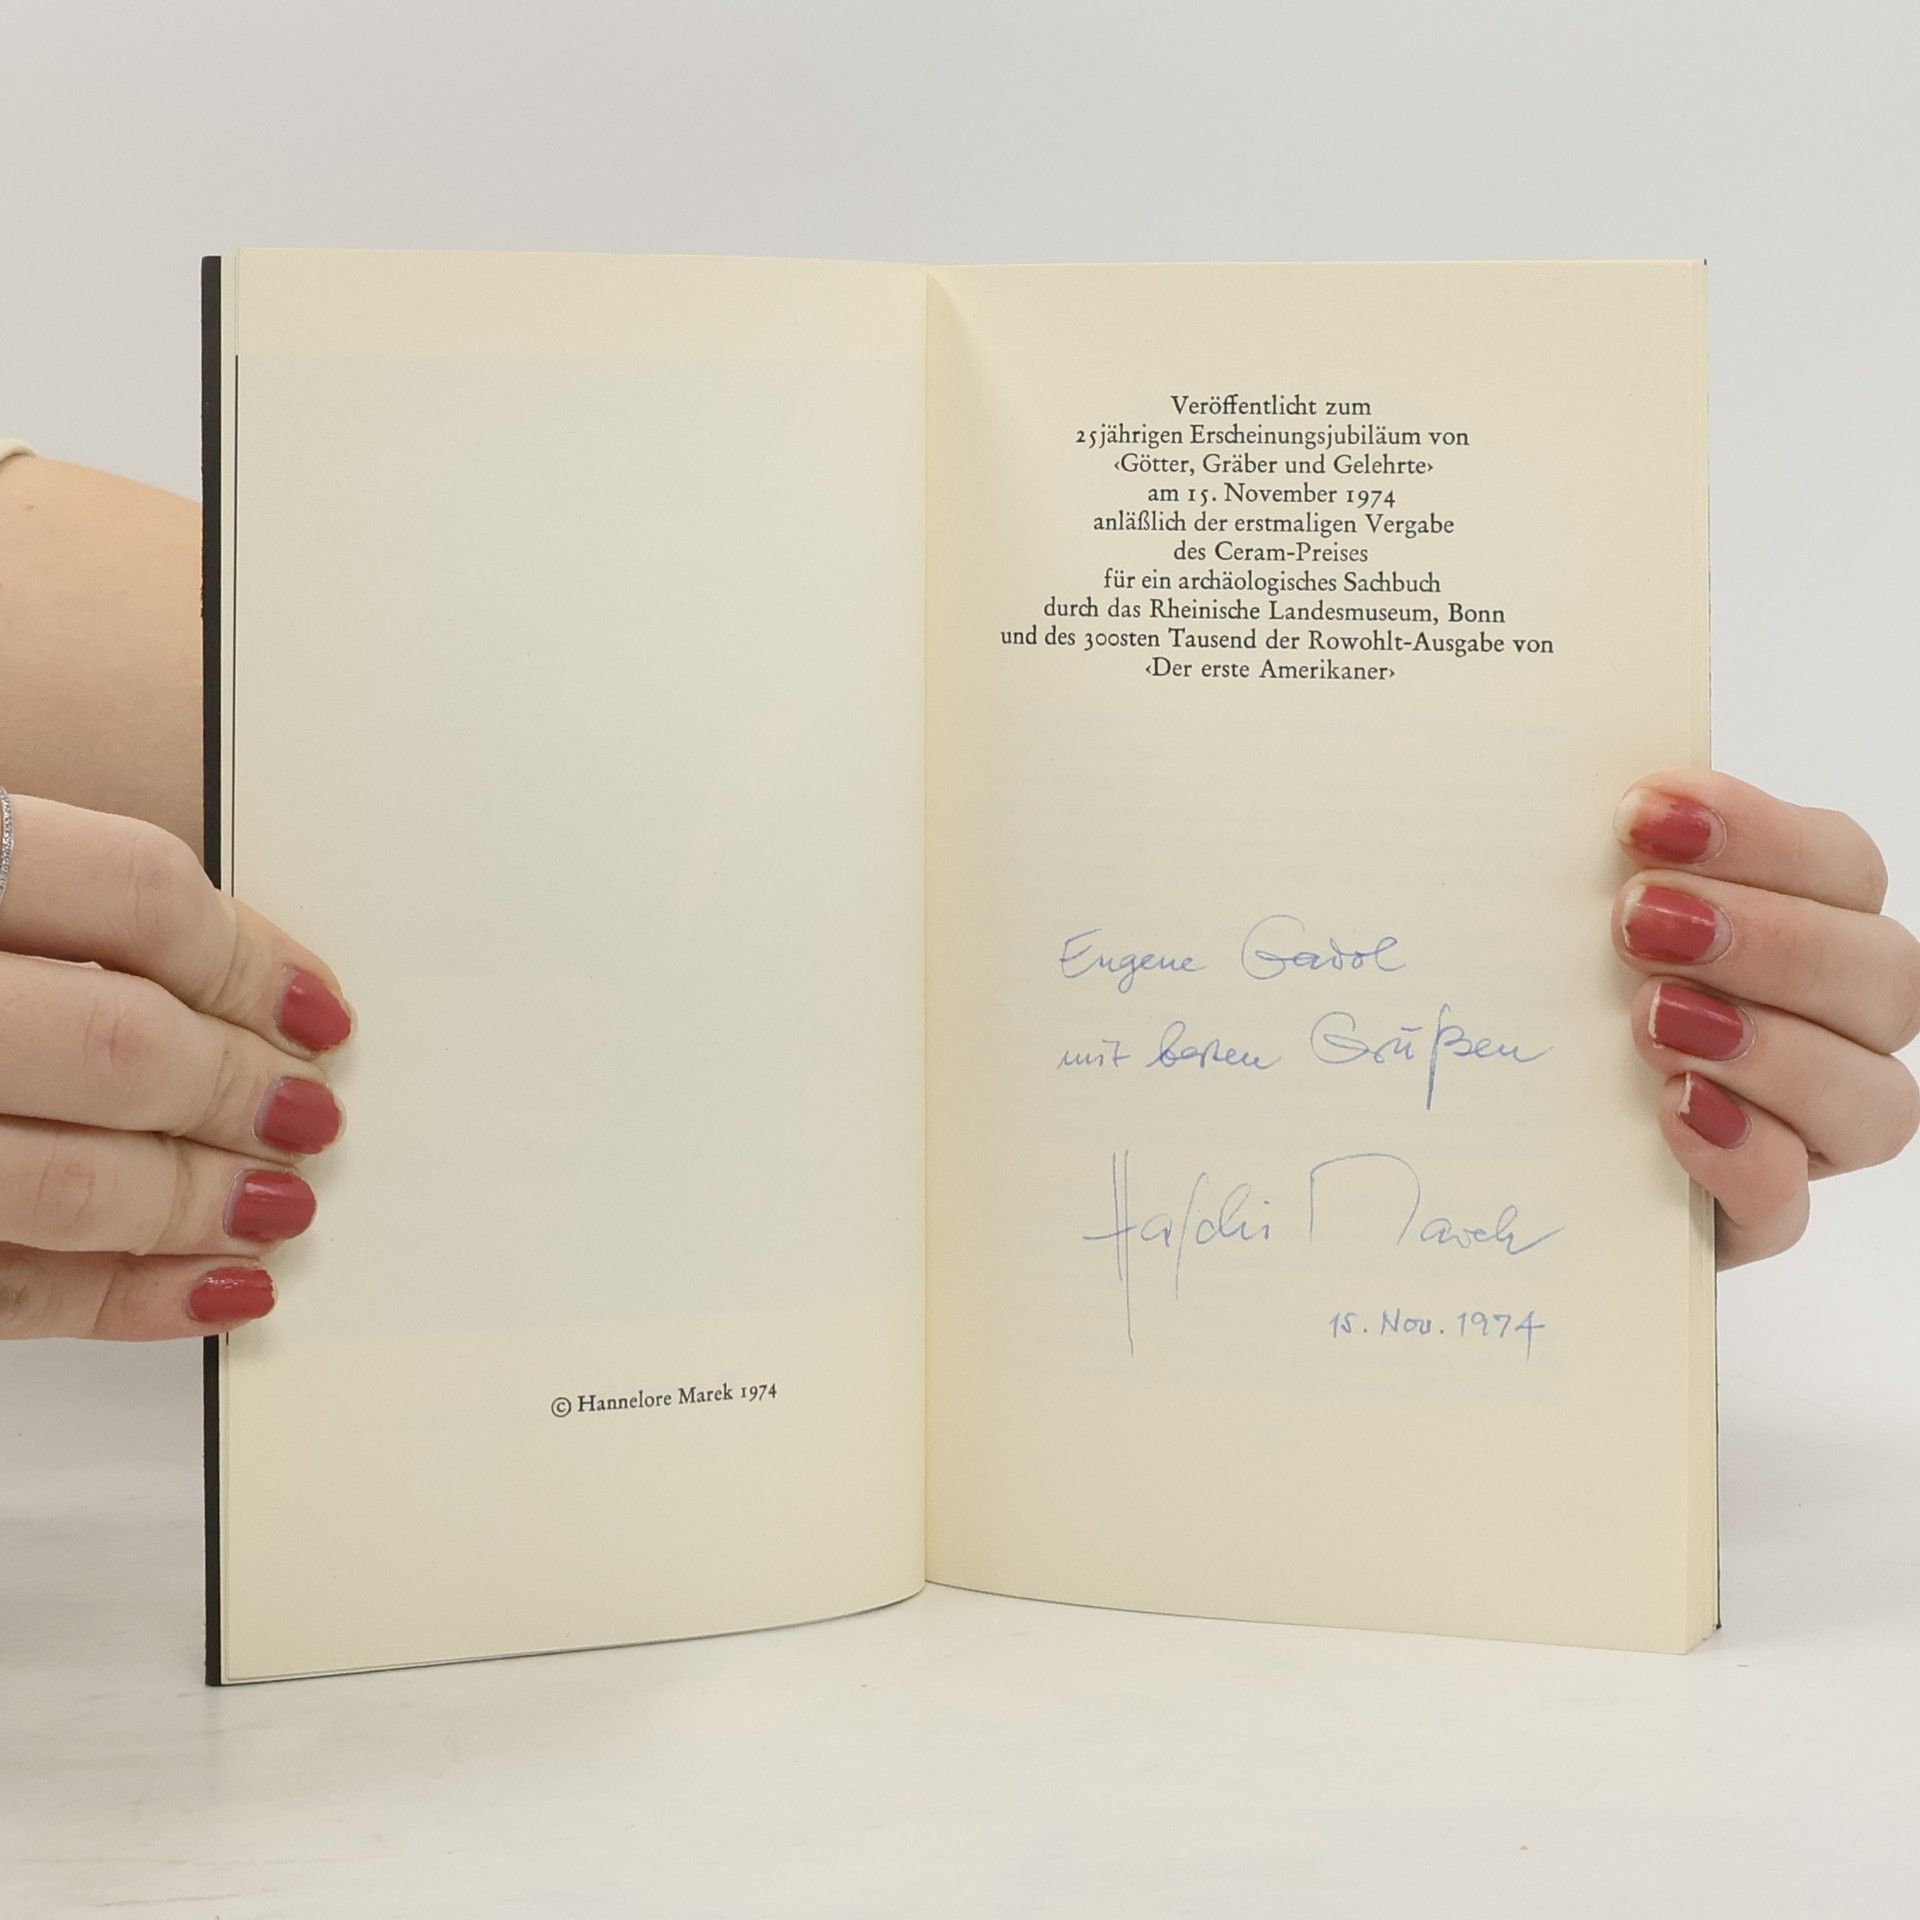 © Hannelore Marek 1974
Veröffentlicht zum
25jährigen Erscheinungsjubiläum von
‹Götter, Gräber und Gelehrte›
am 15. November 1974
anläßlich der erstmaligen Vergabe
des Ceram-Preises
für ein archäologisches Sachbuch
durch das Rheinische Landesmuseum, Bonn
und des 300sten Tausend der Rowohlt-Ausgabe von
‹Der erste Amerikaner›
Eugene Gadol
mit besten Grüßen
Marek
15. Nov. 1974